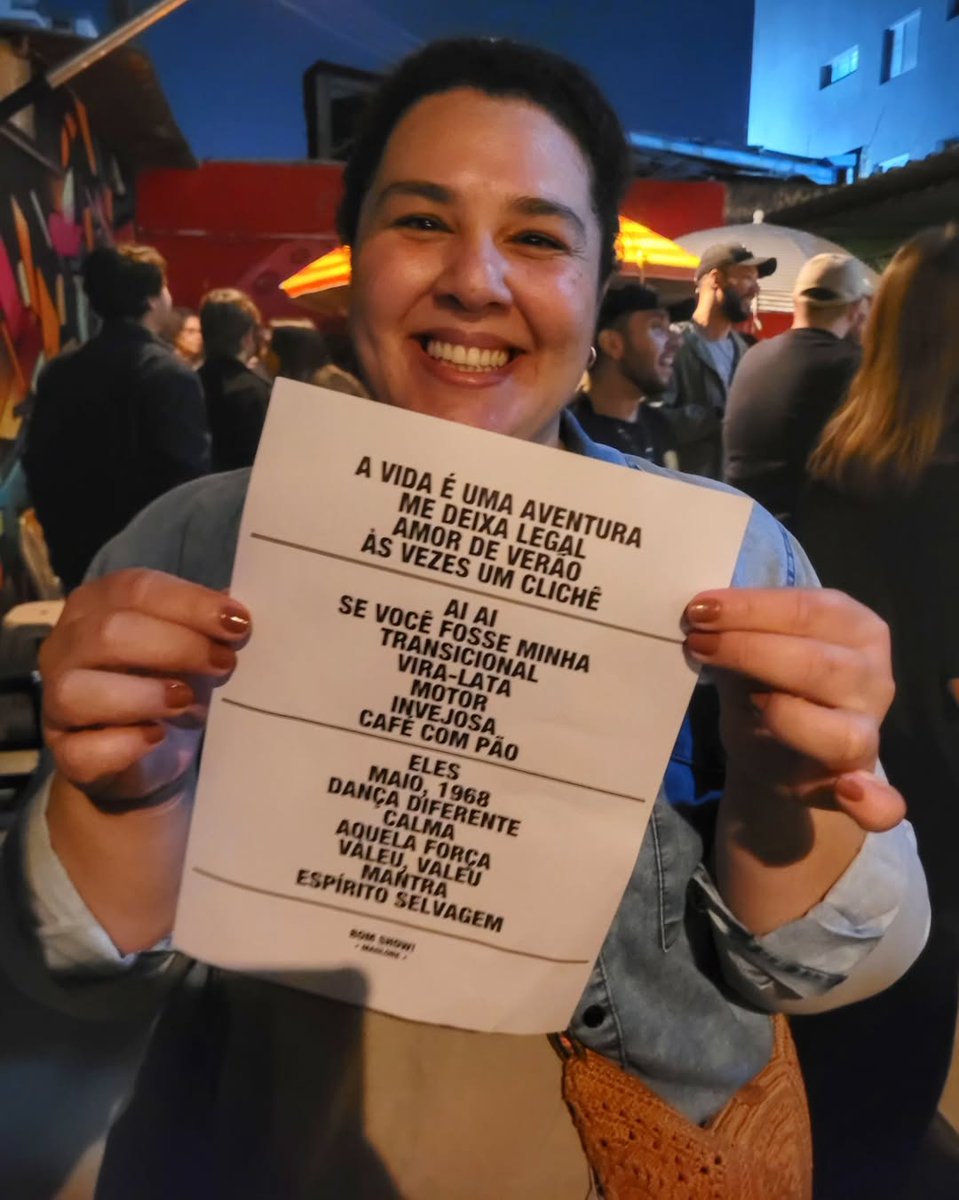 A VIDA É UMA AVENTURA
ME DEIXA LEGAL
AMOR DE VERÃO
ÀS VEZES UM CLICHÊ
AI AI
SE VOCÊ FOSSE MINHA
TRANSICIONAL
VIRA-LATA
MOTOR
INVEJOSA
CAFÉ COM PÃO
ELES
MAIO, 1968
DANÇA DIFERENTE
CALMA
AQUELA FORÇA
VALEU, VALEU
MANTRA
ESPÍRITO SELVAGEM
BOM SHOW!